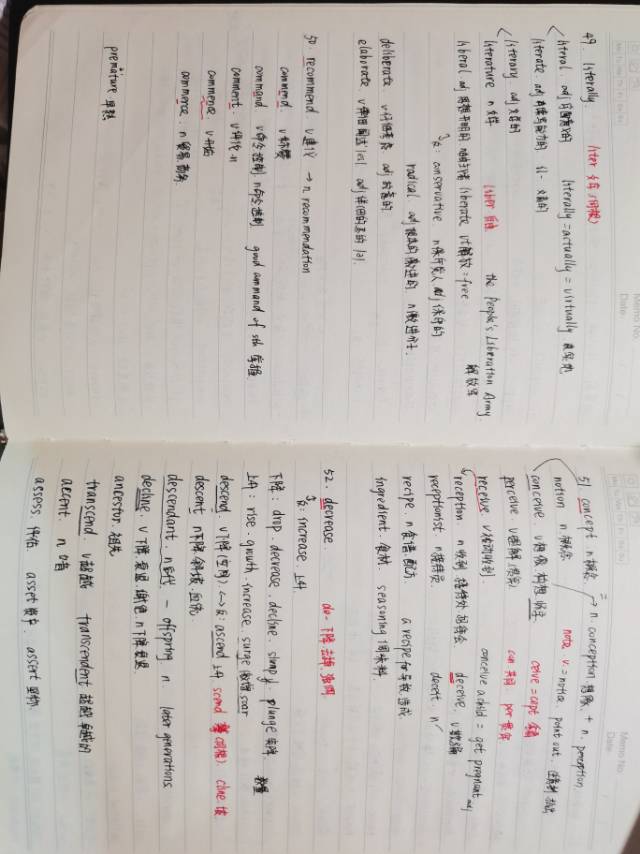 Memo No.
Date
49. literally liter 文字(词根)
literal adj 字面意义的 literally = actually = virtually 真实地
literate adj 有读写能力的 il- 文盲的
literary adj 文学的
literature n 文学 liber 自由 the People's Liberation Army
解放军
liberal adj 思想开明的 liberate vt 解放 = free
反: conservative n 保守党人 adj 保守的
radical adj 激进的 n 激进分子
deliberate v 仔细考虑 adj
elaborate v 详细阐述 adj 详细的
50. recommend v 建议 → n recommendation
commend v 称赞
command v 命令 控制 n 命令 控制 good command of sth 掌握
comment v 评论 n
commence v 开始
commerce n 贸易 商务
premature 早熟
Memo No.
Date
51 concept n 概念 = n. conception 想象 + n. perception
notion n 概念 note v. = notice point out
conceive v 想象 构想 ceive = cept 拿
perceive v 理解 察觉 con 共同 per
receive v 收到 conceive a child = get pregnant adj
reception n 收到 接待处 招待会 deceive v 欺骗
receptionist n 接待员 deceit n
recipe n 食谱 配方 a recipe for 导致 造成
ingredient 食材 seasoning 调味料
52. decrease de- 下降 去掉 强调
反: increase 上升
下降: drop. decrease. decline. slump plunge
上升: rise. growth. increase surge soar
descend v 下降 ↔ 反: ascend 上升 scend (词根) cline 坡
descent n 下降 斜坡 血统
descendant n 后代 - offspring n later generations
decline v 下降 衰退 谢绝 n 下降 衰退
ancestor 祖先
transcend v 超越 transcendent 超越 卓越的
accent n 口音
assess 评估 asset 资产 assert 坚称